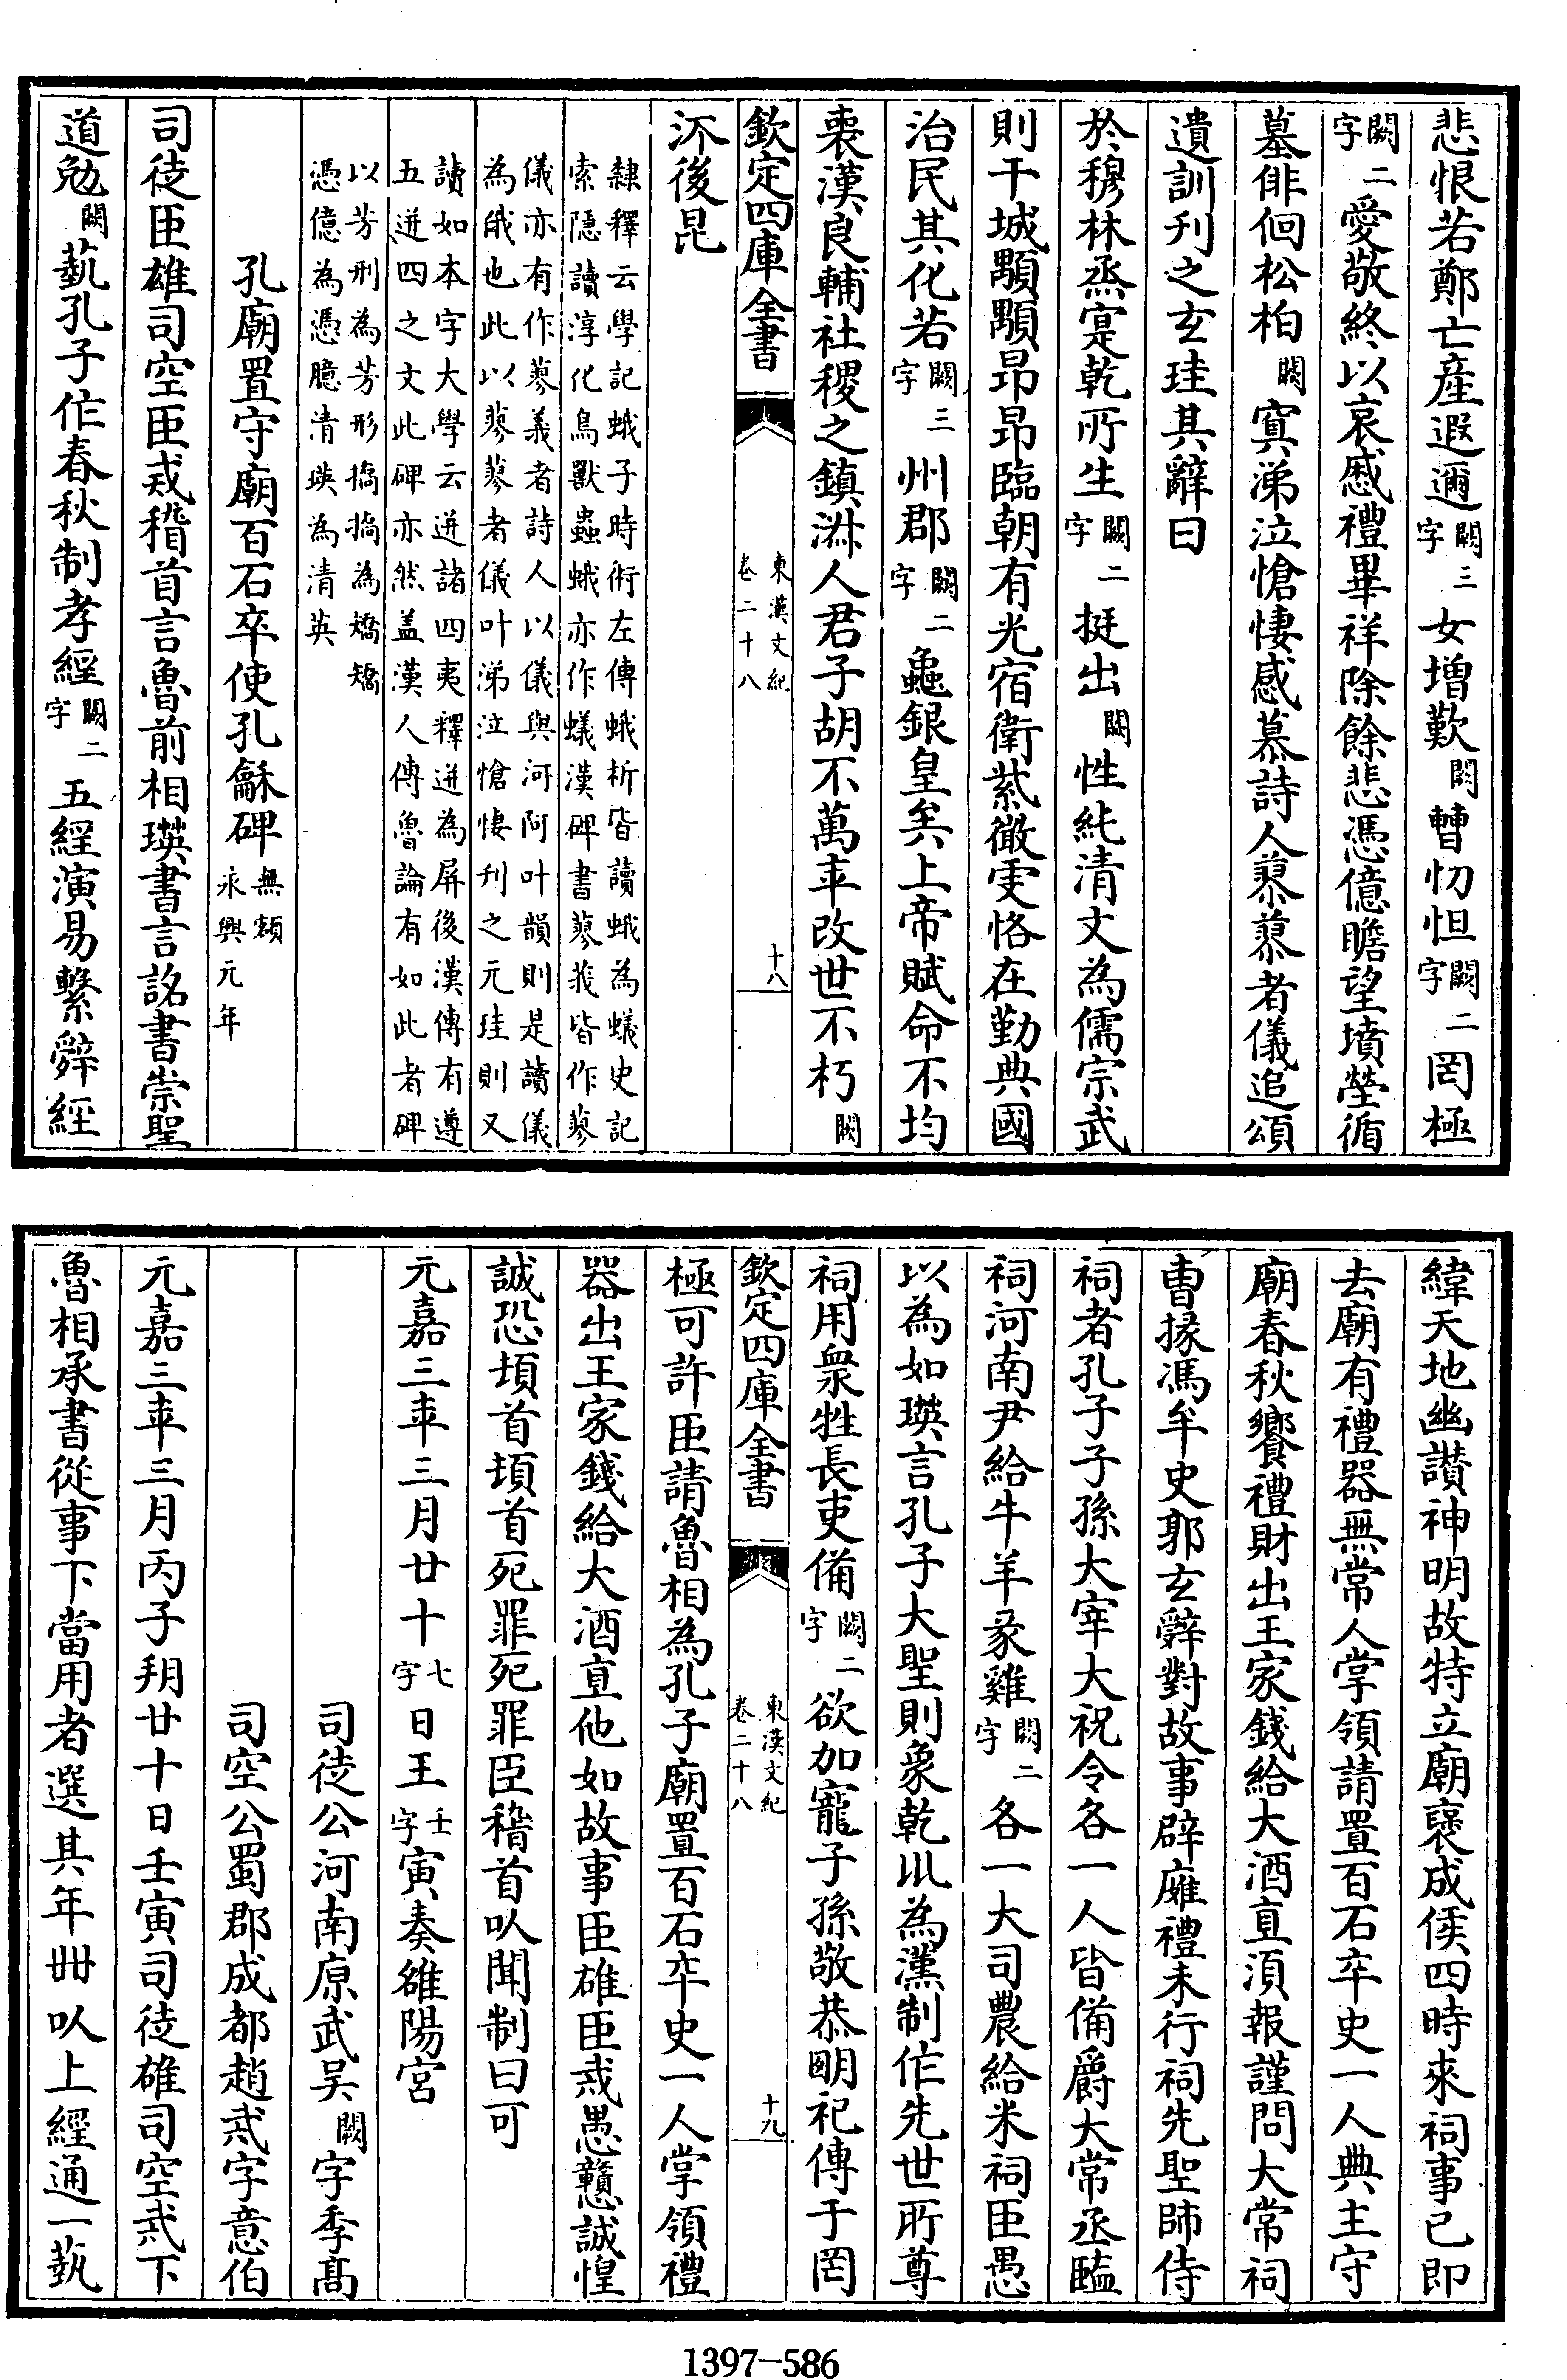 悲恨若鄭亡産遐邇闕三字女增歎闕曹忉怛闕二字罔極
闕二字愛敬終以哀慼禮畢祥除餘悲憑億瞻望墳塋循
墓俳佪松柏闕寞涕泣愴悽感慕詩人蓼蓼者儀追頌
遺訓刋之玄珪其辭曰
於穆林烝寔乾所生闕二字挺出闕性純清文為儒宗武
則干城顒顒昂昂臨朝有光宿衛紫徽雯恪在勤典國
治民其化若闕三字州郡闕二字龜銀皇矣上帝賦命不均
喪漢良輔社稷之鎮淋人君子胡不萬年改世不朽闕
欽定四庫全書
東漢文紀
卷二十八
十八
沠後昆
隸釋云學記蛾子時術左傳蛾析皆讀蛾為蟻史記
索隱讀淳化鳥獸蟲蛾亦作蟻漢碑書蓼莪皆作蓼
儀亦有作蓼義者詩人以儀與河阿叶韻則是讀儀
為俄也此以蓼蓼者儀叶涕泣愴悽刋之元珪則又
讀如本字大學云迸諸四夷釋迸為屏後漢傳有遵
五迸四之文此碑亦然盖漢人傳魯論有如此者碑
以芳刑為芳形撟撟為矯矯
憑億為憑臆清瑛為清英
孔廟置守廟百石卒使孔龢碑無額
永興元年
司徒臣雄司空臣戎稽首言魯前相瑛書言詺書崇聖
道勉闕蓺孔子作春秋制孝經闕二字五經演易繫辤經
緯天地幽讃神明故特立廟襃成侯四時來祠事已即
去廟有禮器無常人掌領請置百石卒史一人典主守
廟春秋饗禮財出王家錢給大酒直湏報謹問大常祠
曹掾馮牟史郭玄辤對故事辟廱禮未行祠先聖師侍
祠者孔子子孫大宰大祝令各一人皆備爵大常丞監
祠河南尹給牛羊豕雞闕二字各一大司農給米祠臣愚
以為如瑛言孔子大聖則象乾巛為漢制作先世所尊
祠用衆牲長吏備闕二字欲加寵子孫敬恭明祀傳于罔
欽定四庫全書
東漢文紀
卷二十八
十九
極可許臣請魯相為孔子廟置百石卒史一人掌領禮
器出王家錢給大酒直他如故事臣雄臣戎愚戇誠惶
誠恐頓首頓首死罪死罪臣稽首以聞制曰可
元嘉三年三月廿十七字日王壬字寅奏雒陽宮
司徒公河南原武吴闕字季髙
司空公蜀郡成都趙戎字意伯
元嘉三年三月丙子朔廿十日壬寅司徒雄司空戎下
魯相承書從事下當用者選其年卌以上經通一蓺
1397-586